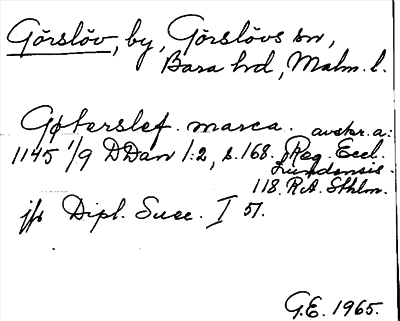 Görslöv, by, Görslövs sn,
Bara hd, Malm. l.
Gøterslef. marca. avskr. a:
1145 1/9 DDan 1:2, s. 168. Reg. Eccl.
Lundensis.
118. RA. Sthlm.
jfr Dipl. Suec. I 51.
G.E. 1965.